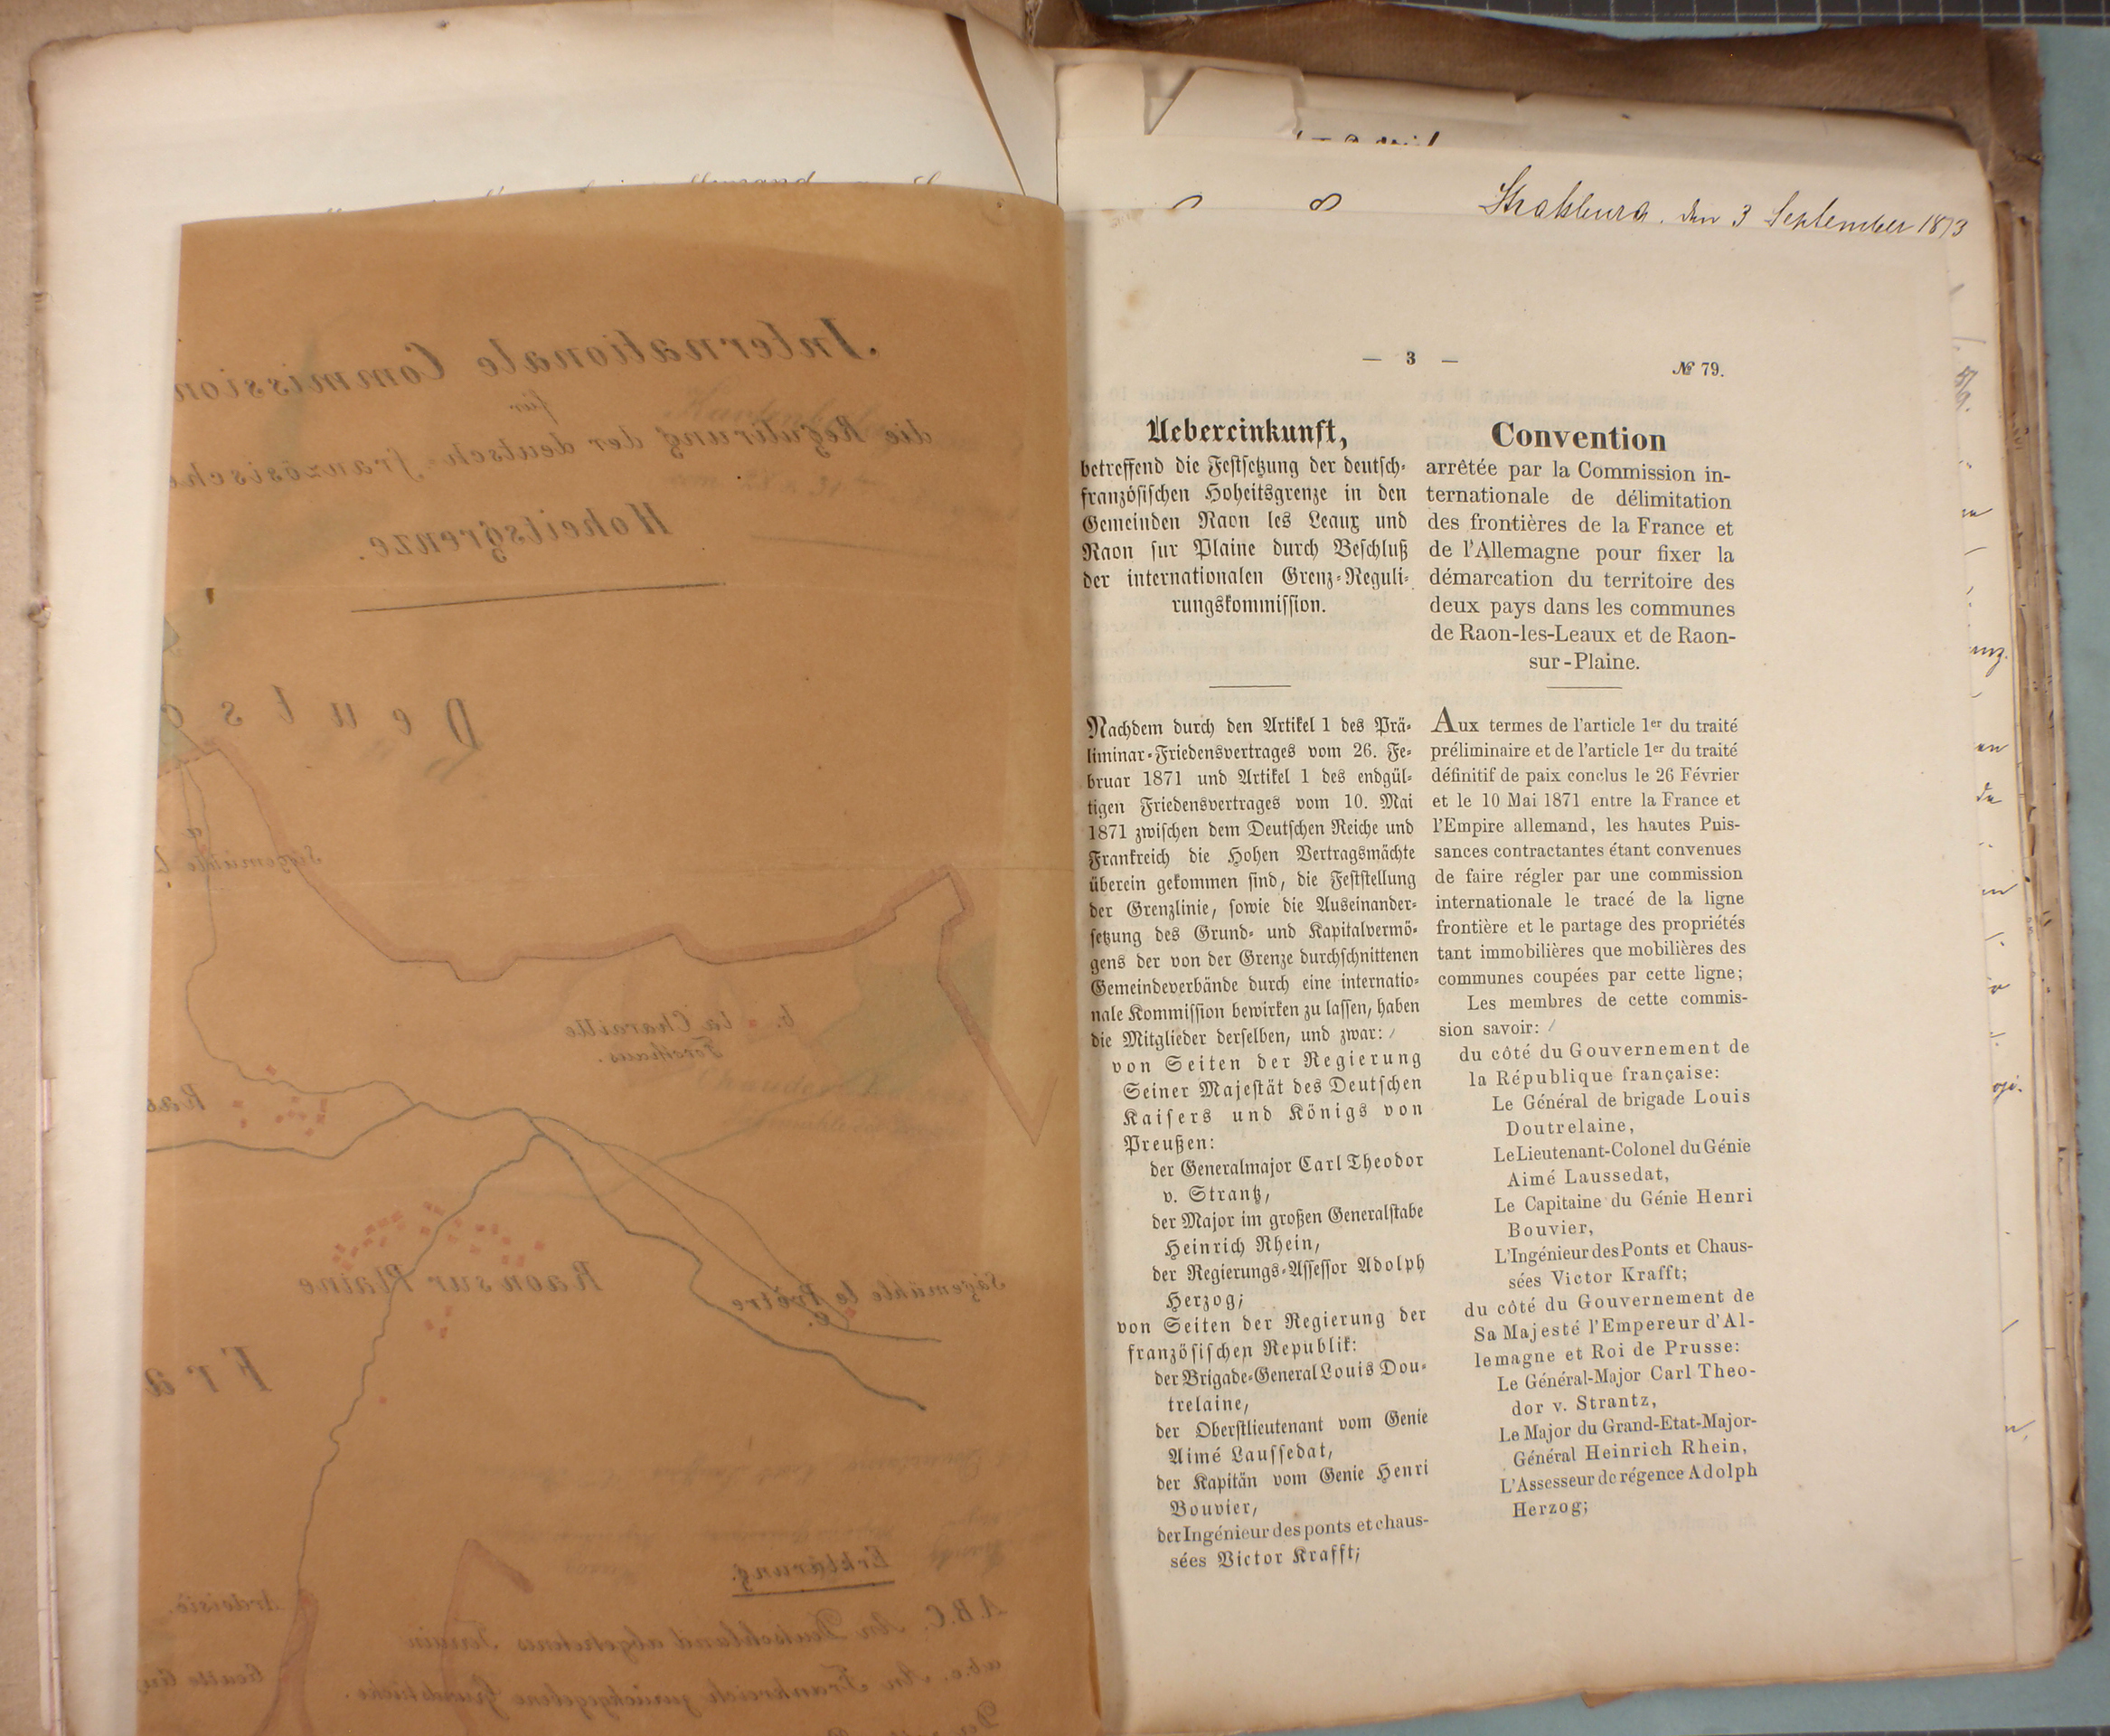 Internationale Commission
für
die Regulirung der deutsch-französische
Hoheitsgrenze.
Deuts
Sägemühle
b. la Charaille
Forsthaus.
Rao
Raon sur Plaine
Sägemühle le Prêtre
c.
Fra
Erklärung.
A.B.C. An Deutschland abgetretenes Terrain
a.b.c. An Frankreich zurückgegebene Grundstücke.
Straßburg, den 3 September 1873
— 3 —
№ 79.
Uebereinkunft,
betreffend die Festsetzung der deutsch-
französischen Hoheitsgrenze in den
Gemeinden Raon les Leaux und
Raon sur Plaine durch Beschluß
der internationalen Grenz-Reguli-
rungskommission.
Nachdem durch den Artikel 1 des Prä-
liminar-Friedensvertrages vom 26. Fe-
bruar 1871 und Artikel 1 des endgül-
tigen Friedensvertrages vom 10. Mai
1871 zwischen dem Deutschen Reiche und
Frankreich die Hohen Vertragsmächte
überein gekommen sind, die Feststellung
der Grenzlinie, sowie die Auseinander-
setzung des Grund- und Kapitalvermö-
gens der von der Grenze durchschnittenen
Gemeindeverbände durch eine internatio-
nale Kommission bewirken zu lassen, haben
die Mitglieder derselben, und zwar:
von Seiten der Regierung
Seiner Majestät des Deutschen
Kaisers und Königs von
Preußen:
der Generalmajor Carl Theodor
v. Strantz,
der Major im großen Generalstabe
Heinrich Rhein,
der Regierungs-Assessor Adolph
Herzog;
von Seiten der Regierung der
französischen Republik:
der Brigade-General Louis Dou-
trelaine,
der Oberstlieutenant vom Genie
Aimé Laussedat,
der Kapitän vom Genie Henri
Bouvier,
der Ingénieur des ponts et chaus-
sées Victor Krafft;
Convention
arrêtée par la Commission in-
ternationale de délimitation
des frontières de la France et
de l'Allemagne pour fixer la
démarcation du territoire des
deux pays dans les communes
de Raon-les-Leaux et de Raon-
sur-Plaine.
Aux termes de l'article 1er du traité
préliminaire et de l'article 1er du traité
définitif de paix conclus le 26 Février
et le 10 Mai 1871 entre la France et
l'Empire allemand, les hautes Puis-
sances contractantes étant convenues
de faire régler par une commission
internationale le tracé de la ligne
frontière et le partage des propriétés
tant immobilières que mobilières des
communes coupées par cette ligne;
Les membres de cette commis-
sion savoir:
du côté du Gouvernement de
la République française:
Le Général de brigade Louis
Doutrelaine,
Le Lieutenant-Colonel du Génie
Aimé Laussedat,
Le Capitaine du Génie Henri
Bouvier,
L'Ingénieur des Ponts et Chaus-
sées Victor Krafft;
du côté du Gouvernement de
Sa Majesté l'Empereur d'Al-
lemagne et Roi de Prusse:
Le Général-Major Carl Theo-
dor v. Strantz,
Le Major du Grand-Etat-Major-
Général Heinrich Rhein,
L'Assesseur de régence Adolph
Herzog;